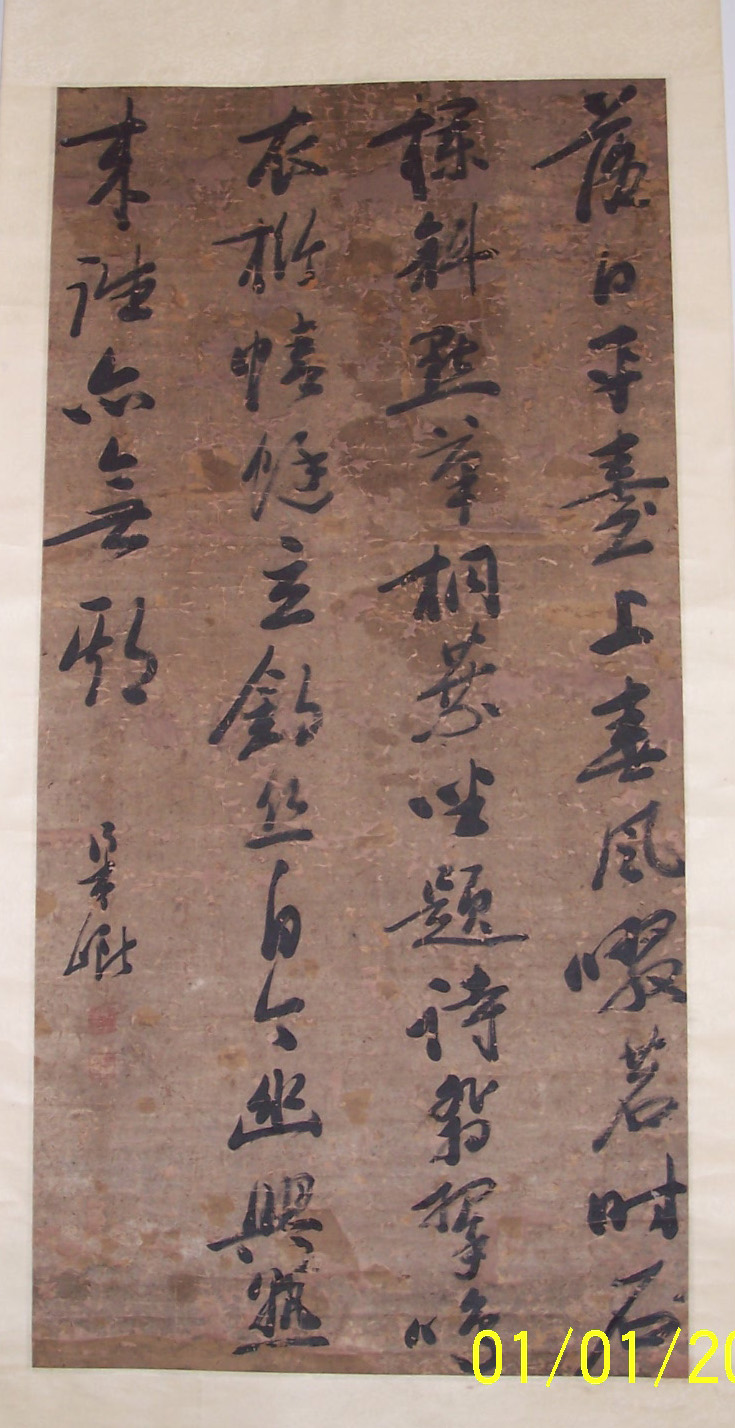 落日平臺上春風啜茗時石
欄斜點筆桐葉坐題詩翡翠鳴
衣桁蜻蜓立釣絲自今幽興熟
來往亦無期
01/01/20